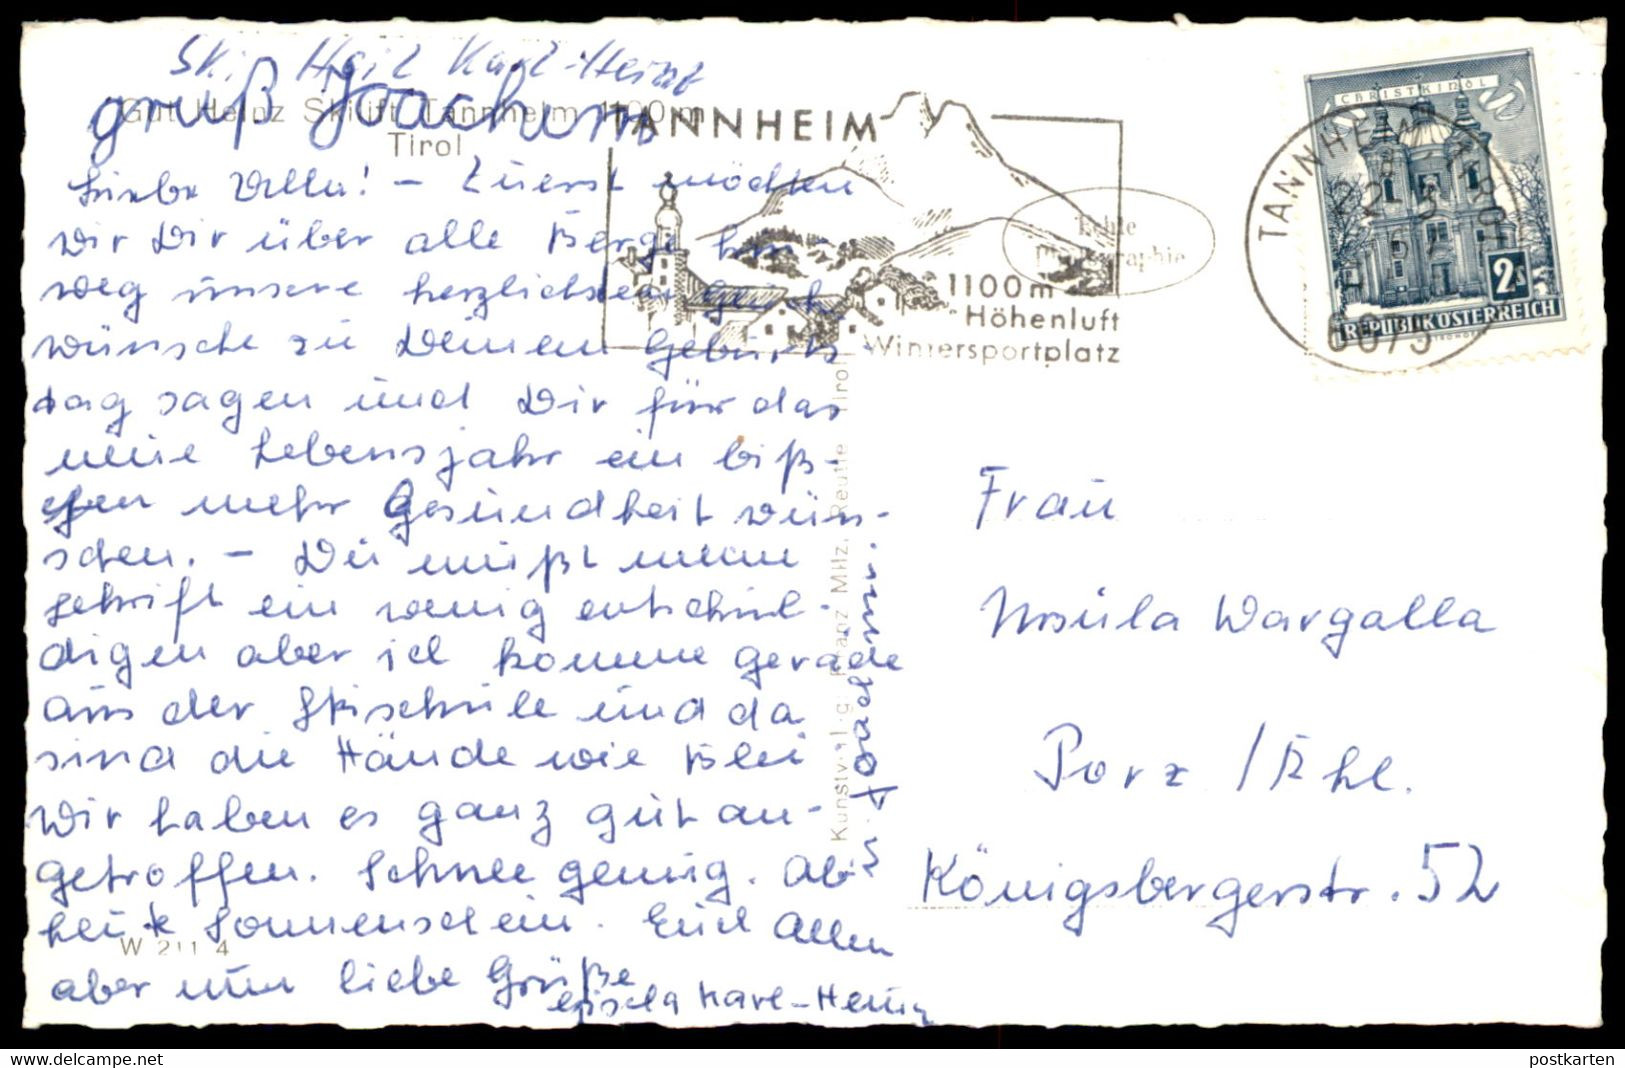 Ski Heil Karl-Heinz
gruß Joachim
Gut Heinz Skilift Tannheim 1100 m
Tirol
Liebe Ulla! – Zuerst möchten
wir Dir über alle Berge hin
weg unsere herzlichsten Glück
wünsche zu Deinem Geburts
tag sagen und Dir für das
neue Lebensjahr ein biß-
chen mehr Gesundheit wün-
schen. – Du mußt meine
Schrift ein wenig entschul-
digen aber ich komme gerade
aus der Skischule und da
sind die Hände wie Blei
Wir haben es ganz gut an-
getroffen. Schnee genug. Ab
heute Sonnenschein. Euch Allen
aber nun liebe Grüße
Gisela Karl-Heinz
u. Joachim.
W 211 4
Kunstverlag Franz Milz, Reutte Tirol
TANNHEIM
1100 m
Höhenluft
Wintersportplatz
Echte
Photographie
TANNHEIM TIROL
6675
CHRISTKINDL
2 S
REPUBLIK ÖSTERREICH
Frau
Ursula Wargalla
Porz / Rhl.
Königsbergerstr. 52
postkarten
on Delcampe.net